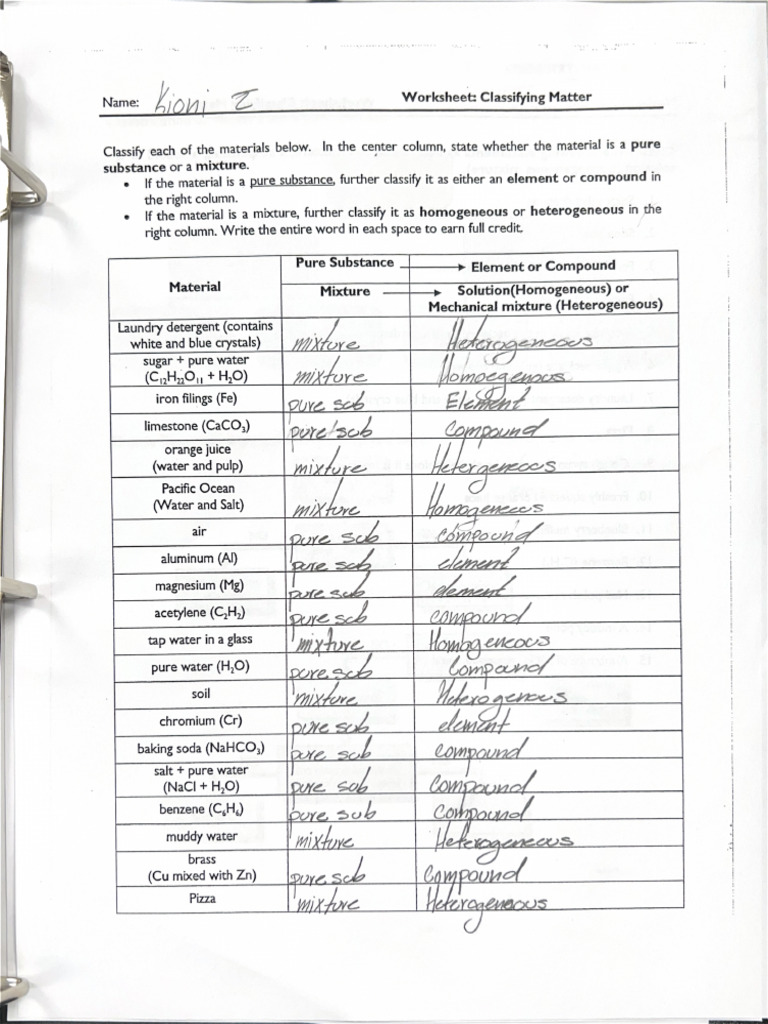 Name: Kioni I Worksheet: Classifying Matter
Classify each of the materials below. In the center column, state whether the material is a pure
substance or a mixture.
• If the material is a pure substance, further classify it as either an element or compound in
the right column.
• If the material is a mixture, further classify it as homogeneous or heterogeneous in the
right column. Write the entire word in each space to earn full credit.
Material
Pure Substance → Element or Compound
Mixture → Solution(Homogeneous) or
Mechanical mixture (Heterogeneous)
Laundry detergent (contains
white and blue crystals) mixture Heterogeneous
sugar + pure water
(C₁₂H₂₂O₁₁ + H₂O) mixture Homoegenous
iron filings (Fe) pure sub Element
limestone (CaCO₃) pure sub Compound
orange juice
(water and pulp) mixture Hetergeneous
Pacific Ocean
(Water and Salt) mixture Homogeneous
air pure sub compound
aluminum (Al) pure sub element
magnesium (Mg) pure sub element
acetylene (C₂H₂) pure sub compound
tap water in a glass mixture Homogeneous
pure water (H₂O) pure sub Compound
soil mixture Heterogenous
chromium (Cr) pure sub element
baking soda (NaHCO₃) pure sub compound
salt + pure water
(NaCl + H₂O) pure sub Compound
benzene (C₆H₆) pure sub Compound
muddy water mixture Heterogeneous
brass
(Cu mixed with Zn) pure sub Compound
Pizza mixture Heterogeneous